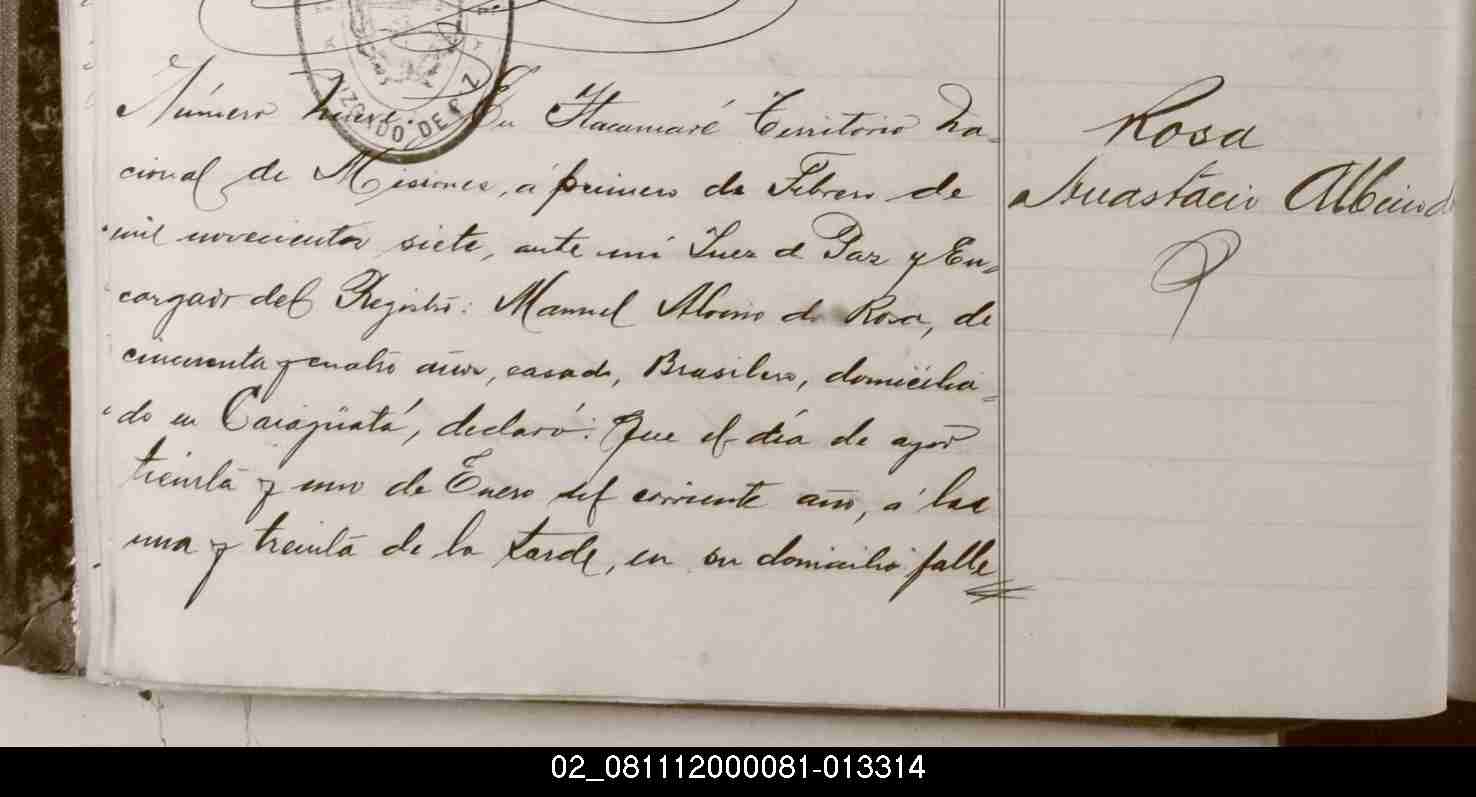 JUZGADO DE PAZ
Número nueve. En Itacuaré Territorio Na-
cional de Misiones, á primero de Febrero de
mil novecientos siete, ante mi Juez de Paz y En-
cargado del Registro: Manuel Albino da Rosa, de
cincuenta y cuatro años, casado, Brasilero, domicilia-
do en Caraguatá, declaró: Que el día de ayer
treinta y uno de Enero del corriente año, á las
una y treinta de la tarde, en su domicilio falle
Rosa
Anastacio Albino da
02_081112000081-013314